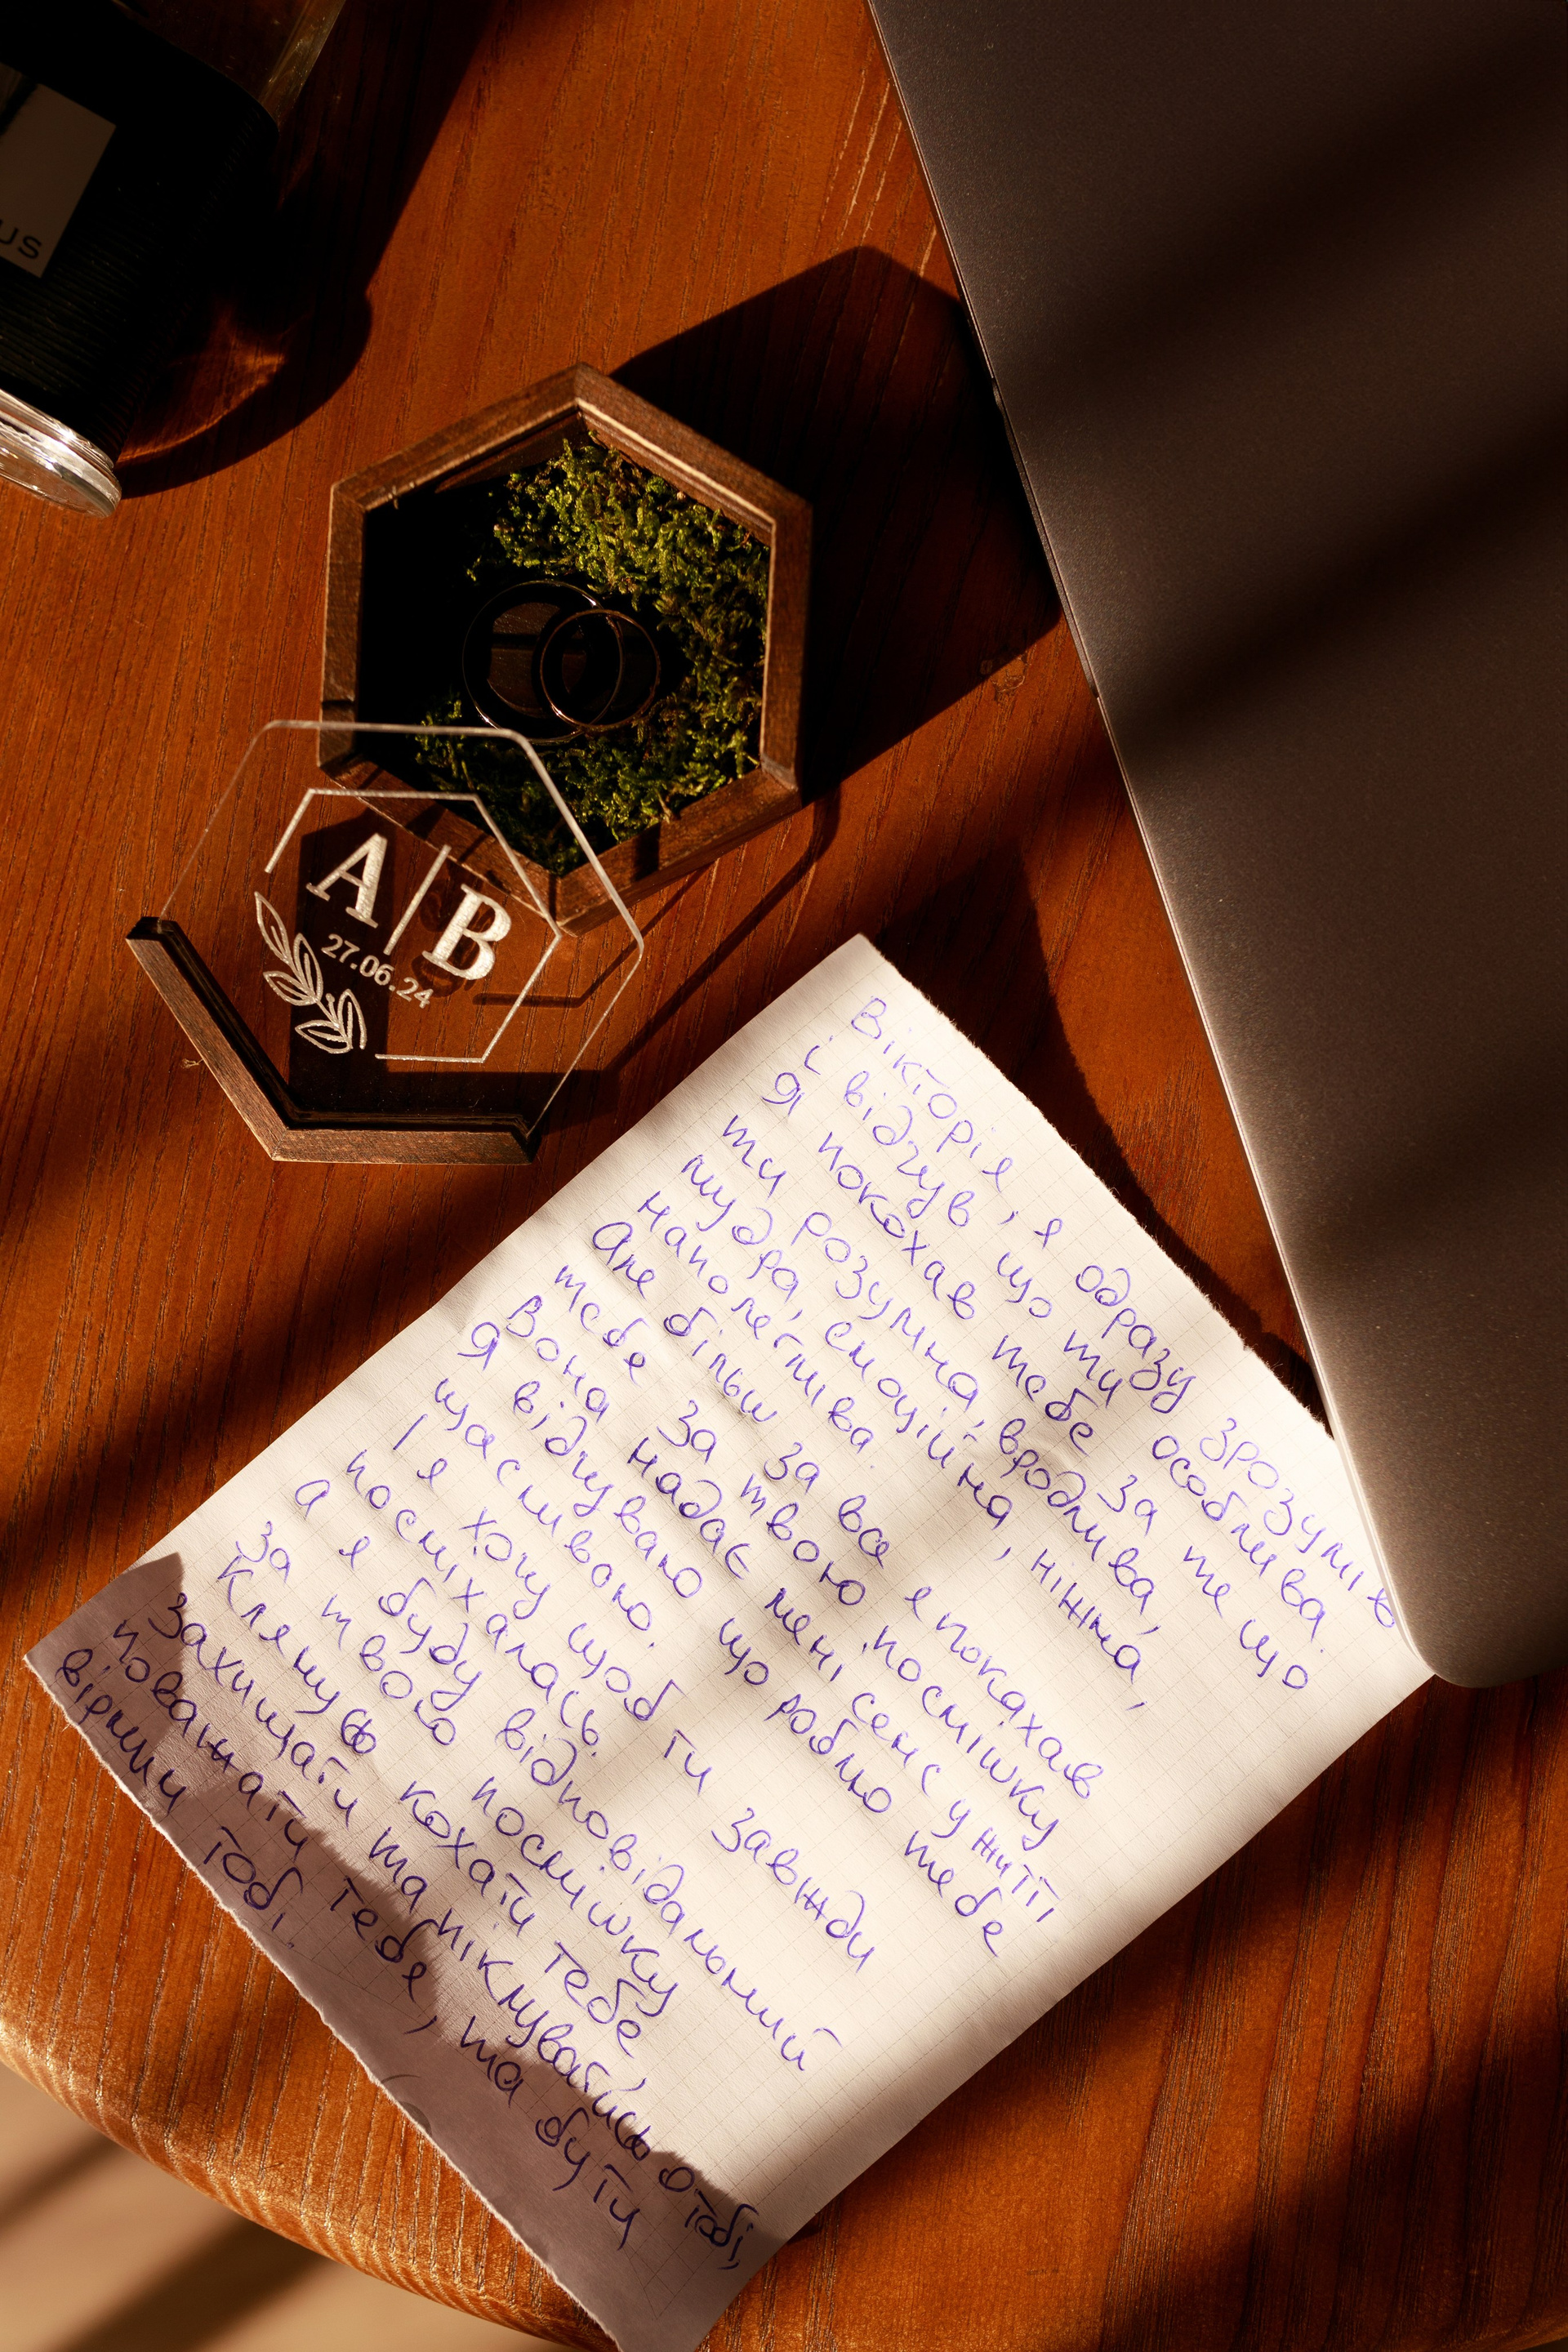 us
A|B
27.06.24
Вікторіє, я одразу зрозумів
і відчув що ти особлива.
Я покохав тебе за те що
ти розумна, вродлива,
мудра, емоційна, ніжна,
наполеглива.
Але більш за все я покахав
тебе за твою посмішку
Вона надає мені сенс у житті,
Я відчуваю що роблю тебе
щасливою.
І я хочу щоб ти завжди
посміхалась.
А я буду відповідальний
за твою посмішку
Клянусь кохати тебе,
захищати та піклуватись о тобі,
поважати тебе, та бути
вірним тобі.